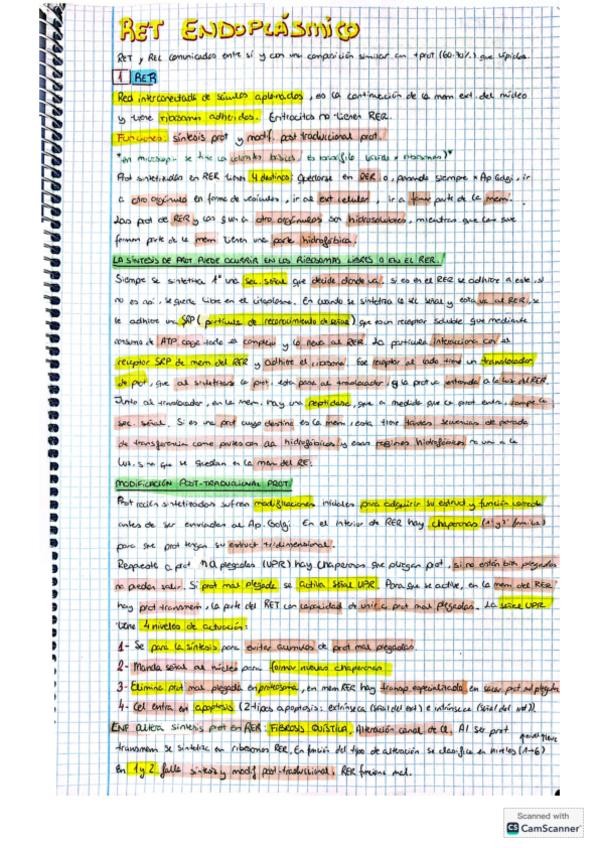 RET ENDOPLÁSMICO
RET y REL comunicados entre sí y con una composición similar con +prot (60-70%) que lípidos.
1 RER
Red interconectada de sáculos aplanados, es la continuación de la mem ext. del núcleo
y tiene ribosomas adheridos. Eritrocitos no tienen RER.
Funciones: síntesis prot y modif. post traduccional prot.
*en microscopio se tiñe con colorantes básicos, es basófilo
Prot sintetizadas en RER tienen 4 destinos: quedarse en RER o, pasando siempre x Ap Golgi, ir
a otro orgánulo en forma de vesículas, ir al ext celular, ir a formar parte de la mem.
Las prot de RER y las que van a otro orgánulos son hidrosolubles, mientras que las que
forman parte de la mem tienen una parte hidrofóbica.
LA SÍNTESIS DE PROT PUEDE OCURRIR EN LOS RIBOSOMAS LIBRES O EN EL RER.
Siempre se sintetiza 1º una sec. señal que decide donde va. si es en el RER se adhiere a este, si
no es así, se queda libre en el citoplasma. En cuando se sintetiza la sec señal y esta va al RER, se
le adhiere un SRP (partícula de reconocimiento de señal) que es un receptor soluble que mediante
consumo de ATP coge todo el complejo y lo lleva al RER. La partícula interacciona con el
receptor SRP de mem del RER y adhiere el ribosoma. Ese receptor al lado tiene un translocador
de prot, que al sintetizarse la prot, esta pasa al translocador, y la prot va entrando a la luz del RER.
Junto al translocador, en la mem, hay una peptidasa, que a medida que la prot entra, rompe la
sec. señal. Si es una prot cuyo destino es la mem, esta tiene tantas secuencias de parada
de transferencia como partes con aa hidrofóbicos y esas regiones hidrofóbicas no van a la
luz, si no que se quedan en la mem del RE.
MODIFICACIÓN POST-TRADUCCIONAL PROT.
Prot recién sintetizadas sufren modificaciones iniciales para adquirir su estruct y función correcta
antes de ser enviadas al Ap. Golgi. En el interior de RER hay chaperonas
para que prot tengan su estruct tridimensional.
Respuesta a prot mal plegadas (UPR) hay chaperonas que pliegan prot, si no están bien plegadas
no pueden salir. Si prot mal plegada se activa señal UPR. Para que se active, en la mem del RER
hay prot transmem, la parte del RET con capacidad de unir a prot mal plegadas. La señal UPR
tiene 4 niveles de actuación:
1- Se para la síntesis para evitar acúmulos de prot mal plegadas.
2- Manda señal al núcleo para formar nuevas chaperonas
3- Elimina prot mal plegada en proteasoma, en mem RER hay transp especializado en sacar prot mal plegada
4- Cel entra en apoptosis (2 tipos apoptosis: extrínseca (señal del ext) e intrínseca (señal del int))
ENF altera síntesis prot en RER: FIBROSIS QUÍSTICA. Alteración canal de Cl. Al ser prot
transmem se sintetiza en ribosomas RER. En función del tipo de alteración se clasifica en niveles (1→6)
En 1 y 2 falla síntesis y modif post-traduccional, RER funciona mal.
Scanned with
CS CamScanner